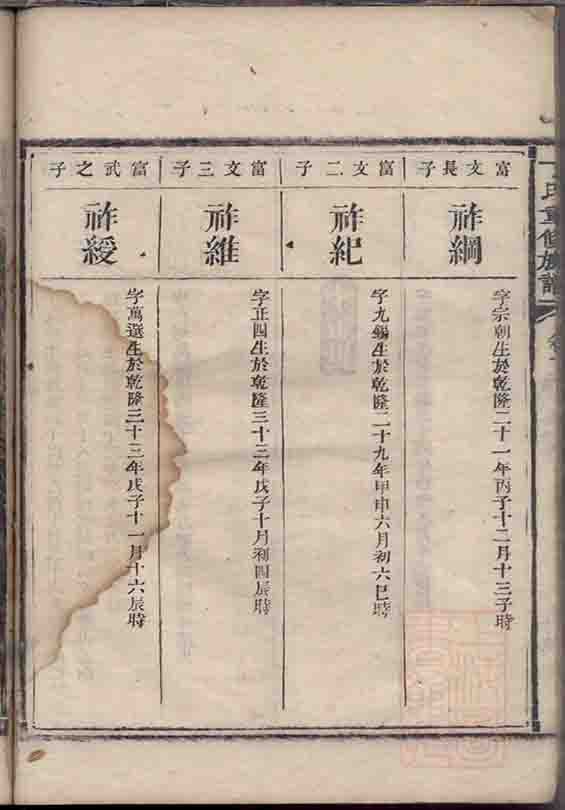 氏重修族譜
富文長子
祚綱
字宗朝生於乾隆二十一年丙子十二月十三子時
富文二子
祚紀
字九錫生於乾隆二十九年甲申六月初六巳時
富文三子
祚維
字正四生於乾隆三十三年戊子十月初四辰時
富武之子
祚綬
字萬選生於乾隆三十三年戊子十一月十六辰時